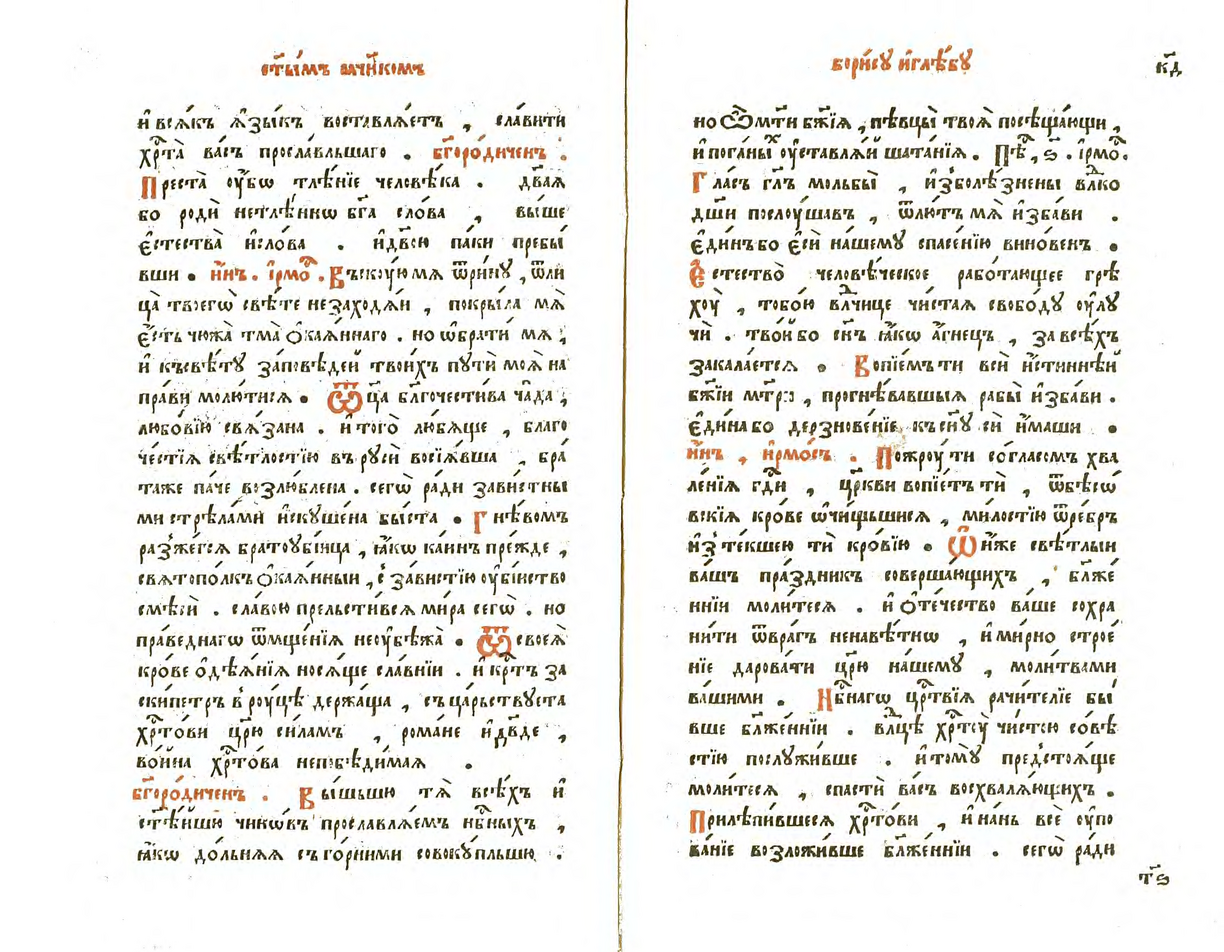 ст҃ы́мъ мч҃нкомъ
и҆ всѧ́къ ѧ҆зы́къ воставлѧ́етъ , сла́вити
хрⷭ҇та̀ ва́съ просла́вльшаго . бг҃оро́диченъ .
Преста̀ ᲂу҆́бѡ тлѣ́нїе человѣ́ка . два́ѧ
бо родѝ нетлѣ́ннѡ бг҃а сло́ва , вы́ше
є҆стества̀ и҆сло́ва . и҆дв҃ою па́ки пребы́
вши . и҆́нъ . і҆рмоⷭ҇ . Въскꙋ́ю мѧ ѿри́нꙋ , ѿли
ца̀ твоегѡ̀ свѣ́те незаходѧ́и , покры́ла мѧ̀
є҆́сть чюжа̀ тма̀ ѻ҆каѧ́ннаго . но ѡ҆брати́ мѧ ,
и҆ късвѣ́тꙋ за́повѣдей твои́хъ пꙋтѝ моѧ̀ на
пра́ви молю́тисѧ . Ѿц҃а̀ бл҃гочести́ва ча̑да ,
любо́вїю свѧ́зана . и҆того̀ любѧ́ще , благо
че́стїѧ свѣ́тлостїю въ рꙋсѝ восїѧ́вша , бра́
таже па́че возлю́блена . сегѡ̀ ра́ди за́вистны
ми стрѣла́ми и҆скꙋше́на бы́ста . Гнѣ́вомъ
разже́гсѧ братоꙋбі́ица , ꙗ҆́кѡ ка́инъ пре́жде ,
свѧтопо́лкъ ѻ҆каѧ́нныи , с̾ за́вистїю ᲂу҆бі́иство
смѣсѝ . сла́вою прельсти́всѧ ми́ра сегѡ̀ . но
пра́веднагѡ ѿмще́нїѧ неᲂу҆бѣжа̀ . Ѿ своеѧ̀
кро́ве ѻ҆дѣѧ́нїѧ носѧ́ще сла́внїи . и҆ крⷭ҇тъ за
ски́петръ в̾ рꙋцѣ̀ держа́ща , съ ца́рьствꙋета
хрⷭ҇то́ви цр҃ю си́ламъ , рома́не и҆ дв҃де ,
во́ина хрⷭ҇то́ва непобѣди́маѧ .
бг҃оро́диченъ . Вы́шьшю тѧ̀ всѣ́хъ и҆
ст҃ѣ́йшю чинѡ́въ прославлѧ́емъ нбⷭ҇ныхъ ,
ꙗ҆́кѡ до́льнѧѧ съ го́рними совокꙋ́пльшю .
бори́сꙋ и҆глѣ́бꙋ
к҃д
но Ѽ мт҃и бж҃їѧ , пѣвцы̀ твоѧ̀ посѣща́ющи ,
и҆ пога́ныⷯ ᲂу҆ставлѧ́й шата́нїѧ . Пѣⷭ҇ , ѕ҃ . і҆рмоⷭ҇ .
Гла́съ гл҃ъ мольбы̀ , и҆ з̾болѣ́знены влⷣко
дш҃и послꙋ́шавъ , ѿлю́тъ мѧ̀ и҆зба́ви .
є҆ди́нъ бо є҆сѝ на́шемꙋ спасе́нїю вино́венъ .
Є҆стество̀ человѣ́ческое рабо́тающее грѣ
хꙋ̀ , тобо́ю влⷣчице чи́стаѧ свобо́дꙋ ᲂу҆лꙋ
чѝ . тво́й бо сн҃ъ ꙗ҆́кѡ а҆́гнецъ , за всѣ́хъ
закала́етсѧ . Вопїе́мъ ти всѝ и҆́стиннѣй
бж҃їи мт҃ри , прогнѣ́вавшыѧ рабы̀ и҆зба́ви .
є҆ди́на бо дерзнове́нїе къ сн҃ꙋ сѝ и҆́маши .
и҆́нъ , и҆рмо́съ . Пожрꙋ́ ти со́гласомъ хва
ле́нїѧ гдⷭ҇и , цр҃кви вопїе́тъ ти , ѿбѣсѡ
вскїѧ кро́ве ѡ҆чи́щьшисѧ , ми́лостїю ѿре́бръ
и҆з̾те́кшею ти кро́вїю . Ѿ и҆́же свѣ́тлыи
ва́шъ пра́здникъ соверша́ющихъ , бл҃же
ннїи моли́тесѧ . и҆ ѻ҆те́чество ва́ше сохра
ни́ти ѿвра́гъ ненавѣ́тнѡ , и҆ ми́рно строе́
нїе дарова́ти цр҃ю на́шемꙋ , моли́твами
ва́шими . Нбⷭ҇нагѡ црⷭ҇твїѧ рачи́телїе бы́
вше бл҃же́ннїи . влⷣцѣ хрⷭ҇тꙋ̀ чи́стою со́вѣ
стїю послꙋжи́вше . и҆томꙋ̀ предстоѧ́ще
моли́тесѧ , спастѝ ва́съ восхвалѧ́ющихъ .
Прилѣпи́вшеесѧ хрⷭ҇то́ви , и҆ нань всѐ ᲂу҆по
ва́нїе возложи́вше бл҃же́ннїи . сегѡ̀ ра́ди
т҃ѕ